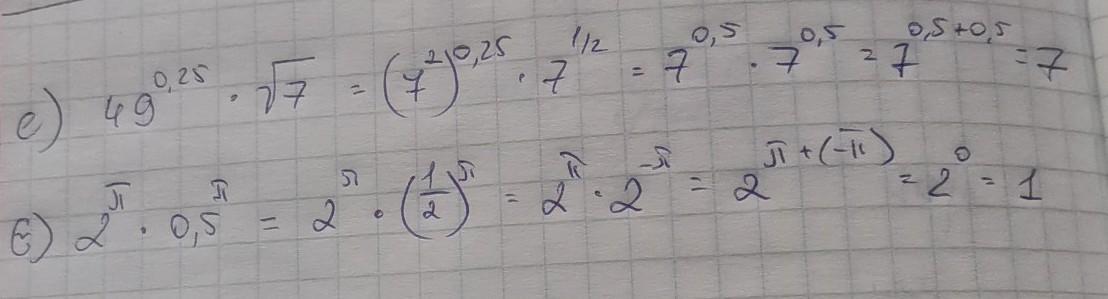 е) 49^0,25 · √7 = (7^2)^0,25 · 7^1/2 = 7^0,5 · 7^0,5 = 7^0,5+0,5 = 7
є) 2^π · 0,5^π = 2^π · (1/2)^π = 2^π · 2^-π = 2^π+(-π) = 2^0 = 1